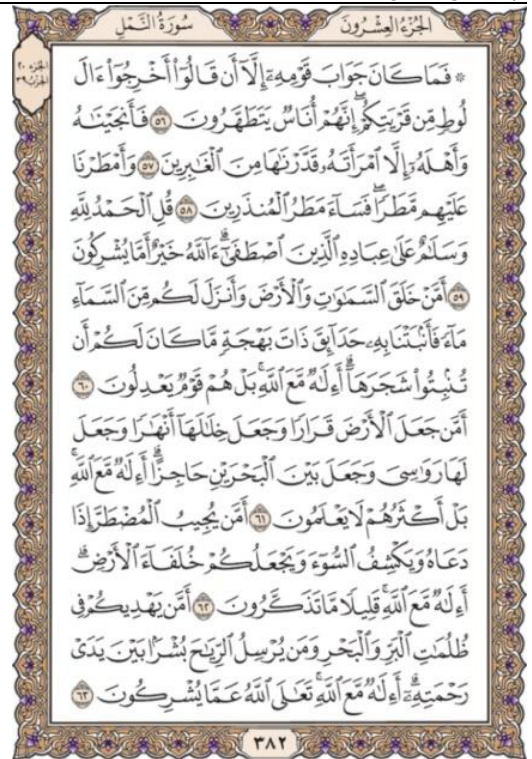 الجُزْءُ العِشْرُونَ
سُورَةُ النَّمْلِ
الجزء ٢٠
الحزب ٣٩
۞ فَمَا كَانَ جَوَابَ قَوْمِهِۦٓ إِلَّآ أَن قَالُوٓا۟ أَخْرِجُوٓا۟ ءَالَ
لُوطٍ مِّن قَرْيَتِكُمْ ۖ إِنَّهُمْ أُنَاسٌ يَتَطَهَّرُونَ ٥٦ فَأَنجَيْنَٰهُ
وَأَهْلَهُۥٓ إِلَّا ٱمْرَأَتَهُۥ قَدَّرْنَٰهَا مِنَ ٱلْغَٰبِرِينَ ٥٧ وَأَمْطَرْنَا
عَلَيْهِم مَّطَرًا ۖ فَسَآءَ مَطَرُ ٱلْمُنذَرِينَ ٥٨ قُلِ ٱلْحَمْدُ لِلَّهِ
وَسَلَٰمٌ عَلَىٰ عِبَادِهِ ٱلَّذِينَ ٱصْطَفَىٰٓ ۗ ءَآللَّهُ خَيْرٌ أَمَّا يُشْرِكُونَ
٥٩ أَمَّنْ خَلَقَ ٱلسَّمَٰوَٰتِ وَٱلْأَرْضَ وَأَنزَلَ لَكُم مِّنَ ٱلسَّمَآءِ
مَآءً فَأَنۢبَتْنَا بِهِۦ حَدَآئِقَ ذَاتَ بَهْجَةٍ مَّا كَانَ لَكُمْ أَن
تُنۢبِتُوا۟ شَجَرَهَآ ۗ أَءِلَٰهٌ مَّعَ ٱللَّهِ ۚ بَلْ هُمْ قَوْمٌ يَعْدِلُونَ ٦٠
أَمَّن جَعَلَ ٱلْأَرْضَ قَرَارًا وَجَعَلَ خِلَٰلَهَآ أَنْهَٰرًا وَجَعَلَ
لَهَا رَوَٰسِىَ وَجَعَلَ بَيْنَ ٱلْبَحْرَيْنِ حَاجِزًا ۗ أَءِلَٰهٌ مَّعَ ٱللَّهِ ۚ
بَلْ أَكْثَرُهُمْ لَا يَعْلَمُونَ ٦١ أَمَّن يُجِيبُ ٱلْمُضْطَرَّ إِذَا
دَعَاهُ وَيَكْشِفُ ٱلسُّوٓءَ وَيَجْعَلُكُمْ خُلَفَآءَ ٱلْأَرْضِ ۗ
أَءِلَٰهٌ مَّعَ ٱللَّهِ ۚ قَلِيلًا مَّا تَذَكَّرُونَ ٦٢ أَمَّن يَهْدِيكُمْ فِى
ظُلُمَٰتِ ٱلْبَرِّ وَٱلْبَحْرِ وَمَن يُرْسِلُ ٱلرِّيَٰحَ بُشْرًۢا بَيْنَ يَدَىْ
رَحْمَتِهِۦٓ ۗ أَءِلَٰهٌ مَّعَ ٱللَّهِ ۚ تَعَٰلَى ٱللَّهُ عَمَّا يُشْرِكُونَ ٦٣
٣٨٢